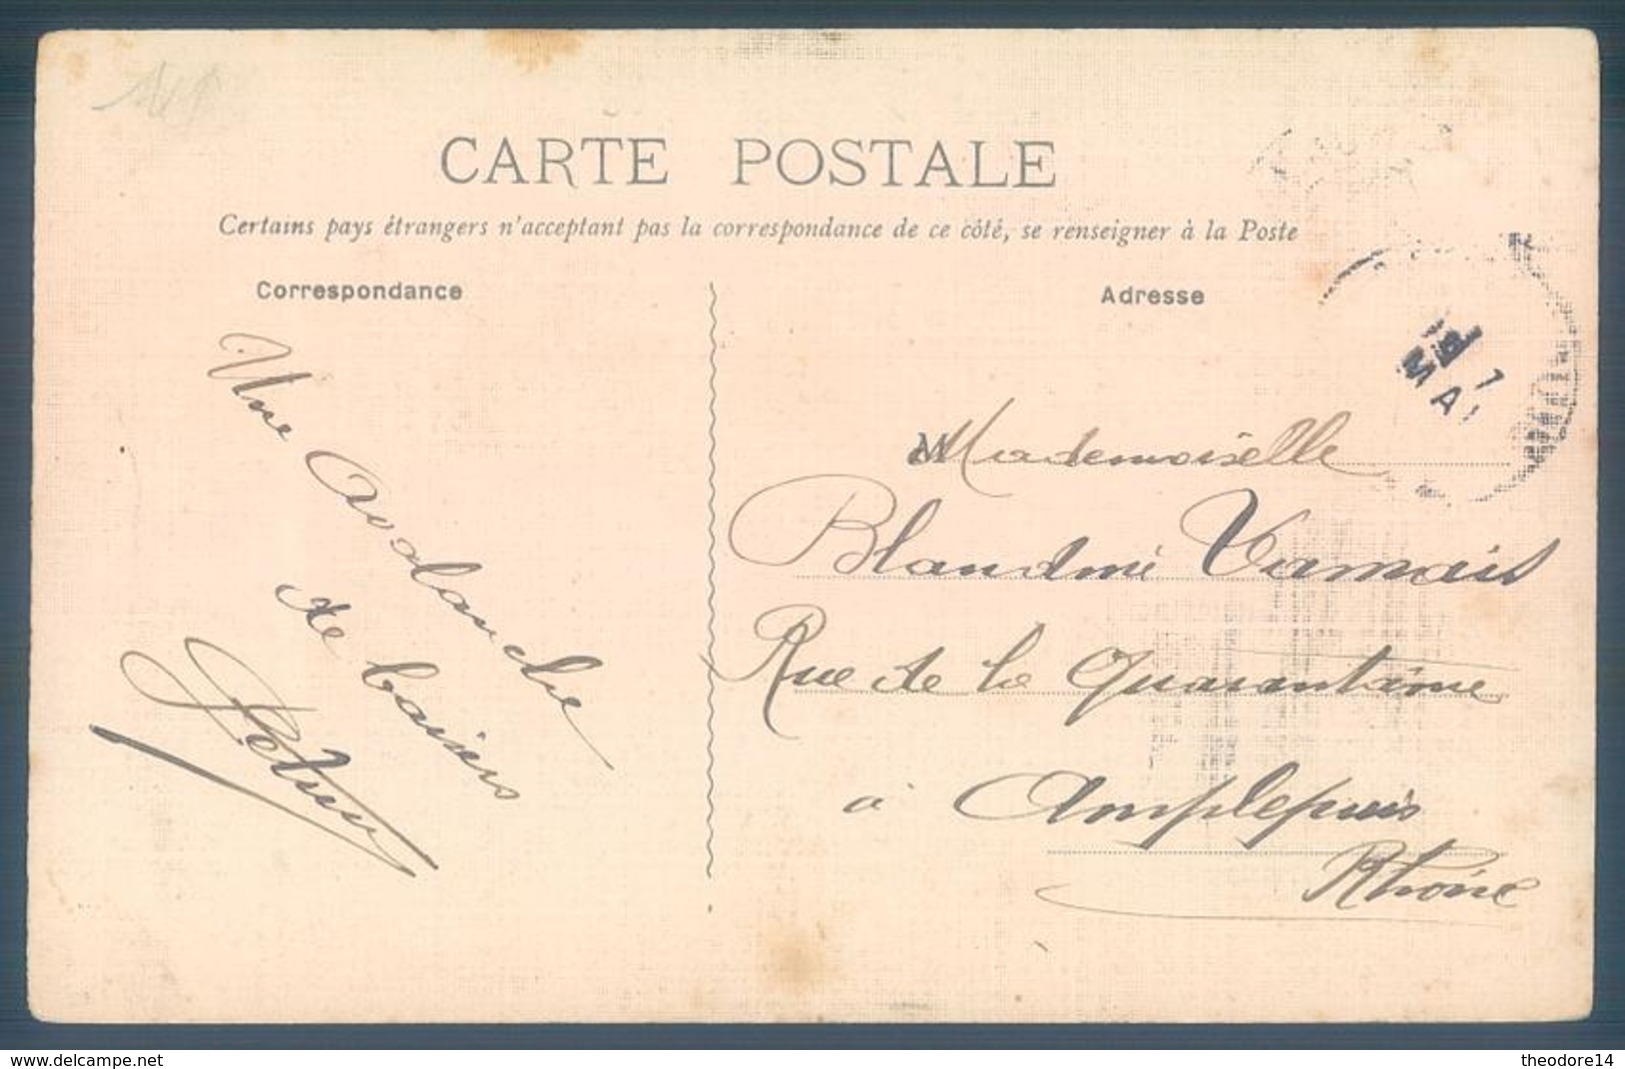 CARTE POSTALE
Certains pays étrangers n'acceptant pas la correspondance de ce côté, se renseigner à la Poste
Correspondance
Adresse
Une Avalanche
de baisers
M Mademoiselle
Blandine
Rue de la Quarantaine
à Amplepuis
Rhône
MA
www.delcampe.net
theodore14